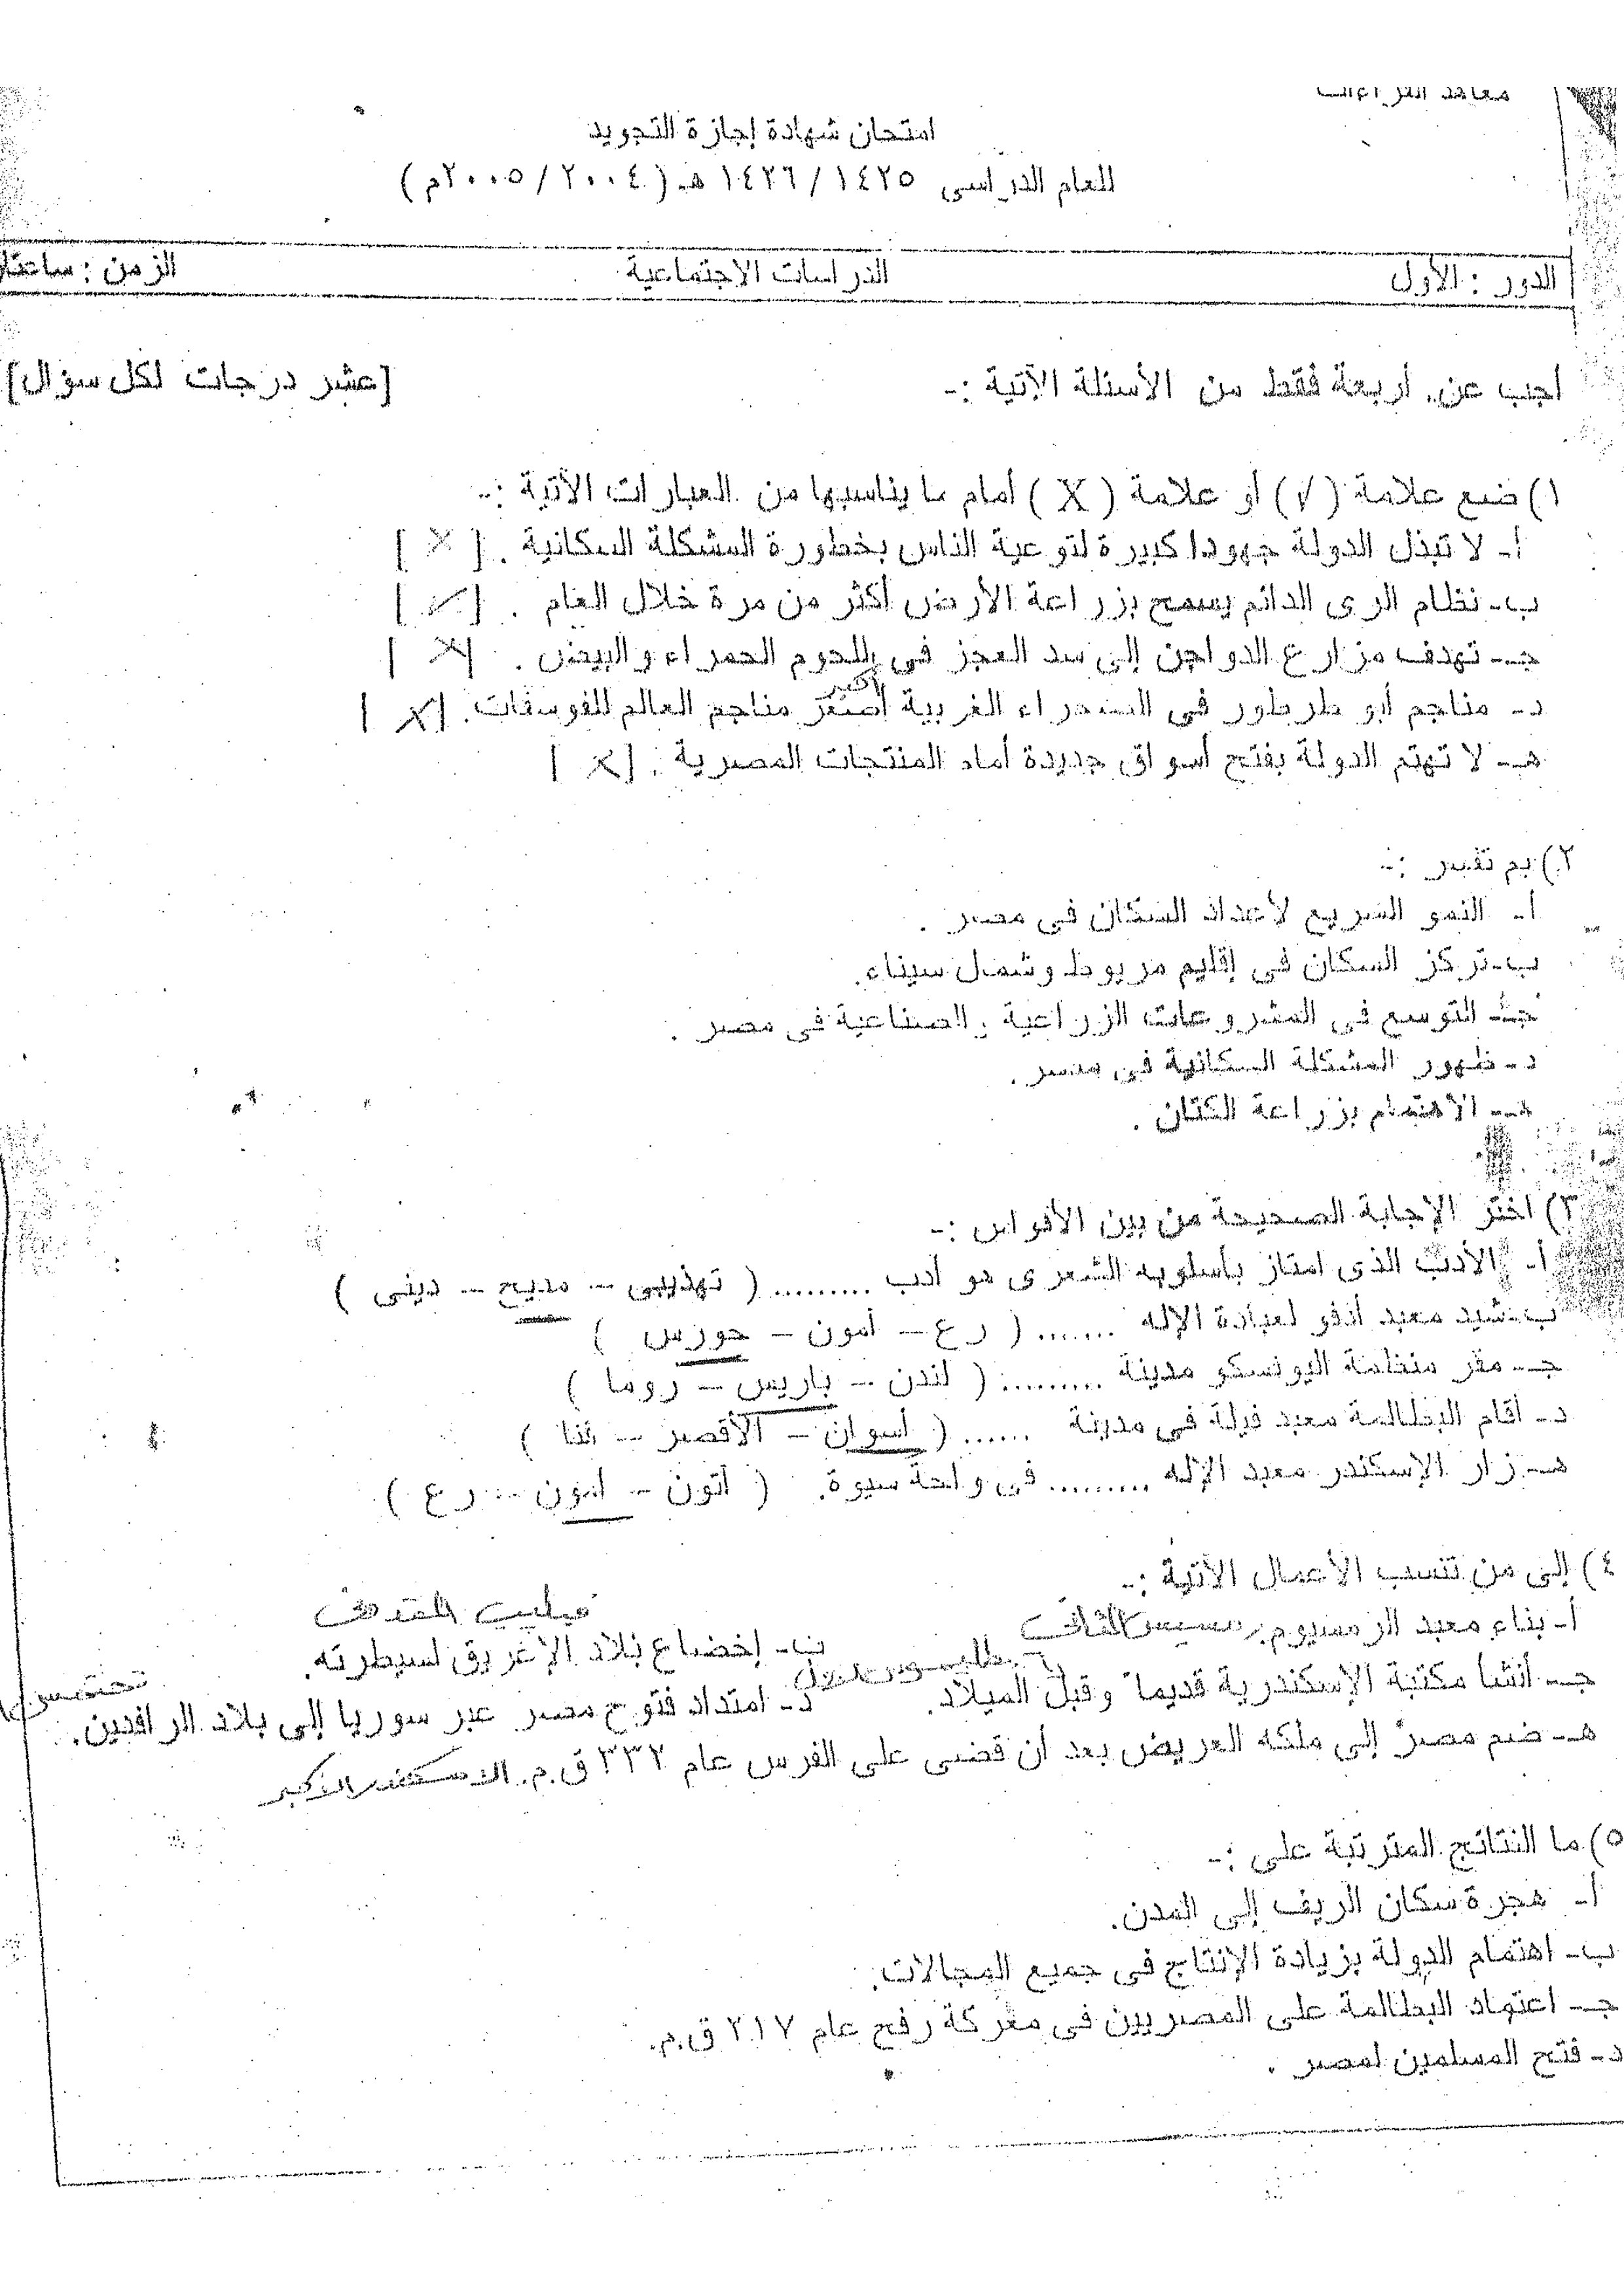 معاهد القراءات
امتحان شهادة إجازة التجويد
للعام الدراسى ١٤٢٥ / ١٤٢٦ هـ ( ٢٠٠٤ / ٢٠٠٥م )
الدور : الأول الدراسات الاجتماعية الزمن : ساعتا
أجب عن أربعة فقط من الأسئلة الآتية :- [عشر درجات لكل سؤال]
١) ضع علامة (√) أو علامة ( X ) أمام ما يناسبها من العبارات الآتية :-
أ- لا تبذل الدولة جهودا كبيرة لتوعية الناس بخطورة المشكلة السكانية . [ X ]
ب- نظام الرى الدائم يسمح بزراعة الأرض أكثر من مرة خلال العام . [ √ ]
جـ- تهدف مزارع الدواجن إلى سد العجز فى اللحوم الحمراء والبيض . [ X ]
أكبر
د- مناجم أبو طرطور فى الصحراء الغربية أصغر مناجم العالم للفوسفات. [ X ]
هـ- لا تهتم الدولة بفتح أسواق جديدة أمام المنتجات المصرية . [ X ]
٢) بم تفسر :-
أ- النمو السريع لأعداد السكان فى مصر .
ب- تركز السكان فى إقليم مريوط وشمال سيناء.
جـ- التوسع فى المشروعات الزراعية والصناعية فى مصر .
د- ظهور المشكلة السكانية فى مصر .
هـ- الاهتمام بزراعة الكتان .
٣) اختر الإجابة الصحيحة من بين الأقواس :-
أ- الأدب الذى امتاز بأسلوبه الشعرى هو أدب ......... ( تهذيبى - مديح - دينى )
ب- شيد معبد أدفو لعبادة الإله ....... ( رع - آمون - حورس )
جـ- مقر منظمة اليونسكو مدينة ......... ( لندن - باريس - روما )
د- أقام البطالمة معبد فيلة فى مدينة ...... ( أسوان - الأقصر - قنا )
هـ- زار الإسكندر معبد الإله ......... فى واحة سيوة. ( آتون - آمون - رع )
٤) إلى من تنسب الأعمال الآتية :-
أ- بناء معبد الرمسيوم. رمسيس الثانى
فيليب المقدونى
ب- إخضاع بلاد الإغريق لسيطرته.
بطليموس الأول
جـ- أنشأ مكتبة الإسكندرية قديماً وقبل الميلاد.
تحتمس
د- امتداد فتوح مصر عبر سوريا إلى بلاد الرافدين.
هـ- ضم مصر إلى ملكه العريض بعد أن قضى على الفرس عام ٣٣٢ ق.م. الاسكندر الأكبر
٥) ما النتائج المترتبة على :-
أ- هجرة سكان الريف إلى المدن.
ب- اهتمام الدولة بزيادة الإنتاج فى جميع المجالات.
جـ- اعتماد البطالمة على المصريين فى معركة رفح عام ٢١٧ ق.م.
د- فتح المسلمين لمصر .